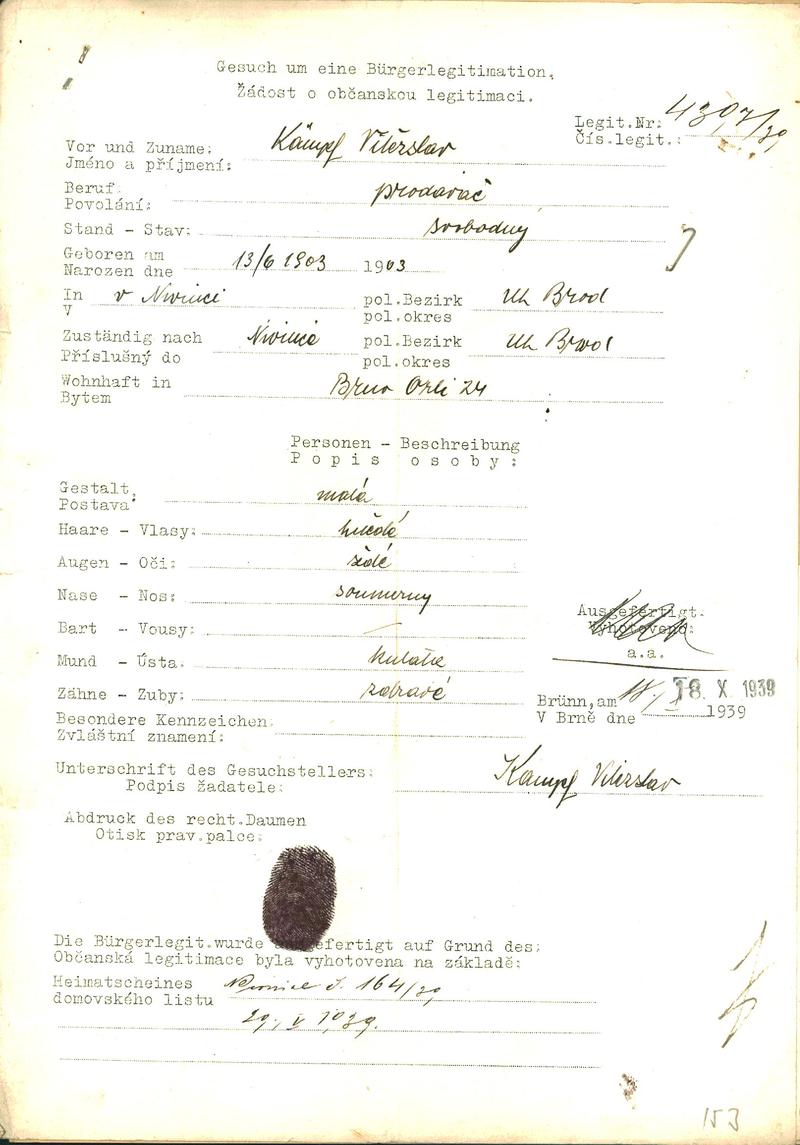 Gesuch um eine Bürgerlegitimation.
Žádost o občanskou legitimaci.
Legit.Nr: 4307/39
Čís.legit.:
Vor und Zuname: Kämpf Vítězslav
Jméno a příjmení:
Beruf: prodavač
Povolání:
Stand - Stav: svobodný
Geboren am 13/6 1903 1903
Narozen dne
In v Nivnici pol.Bezirk Uh Brod
V pol.okres
Zuständig nach Nivnice pol.Bezirk Uh Brod
Příslušný do pol.okres
Wohnhaft in Brno Orlí 24
Bytem
Personen - Beschreibung
Popis osoby:
Gestalt. malá
Postava:
Haare - Vlasy: hnědé
Augen - Oči: šedé
Nase - Nos: souměrný
Bart - Vousy: —
Mund - Ústa: kulatá
Zähne - Zuby: zdravé
Besondere Kennzeichen:
Zvláštní znamení:
Ausgefertigt:
Vyhotoveno:
a.a.
Brünn, am 18. X. 1939
V Brně dne 1939
Unterschrift des Gesuchstellers: Kämpf Vítězslav
Podpis žadatele:
Abdruck des recht.Daumen
Otisk prav.palce:
Die Bürgerlegit.wurde ausgefertigt auf Grund des:
Občanská legitimace byla vyhotovena na základě:
Heimatscheines Nivnice č. 164/39
domovského listu
29. V 1939.
153